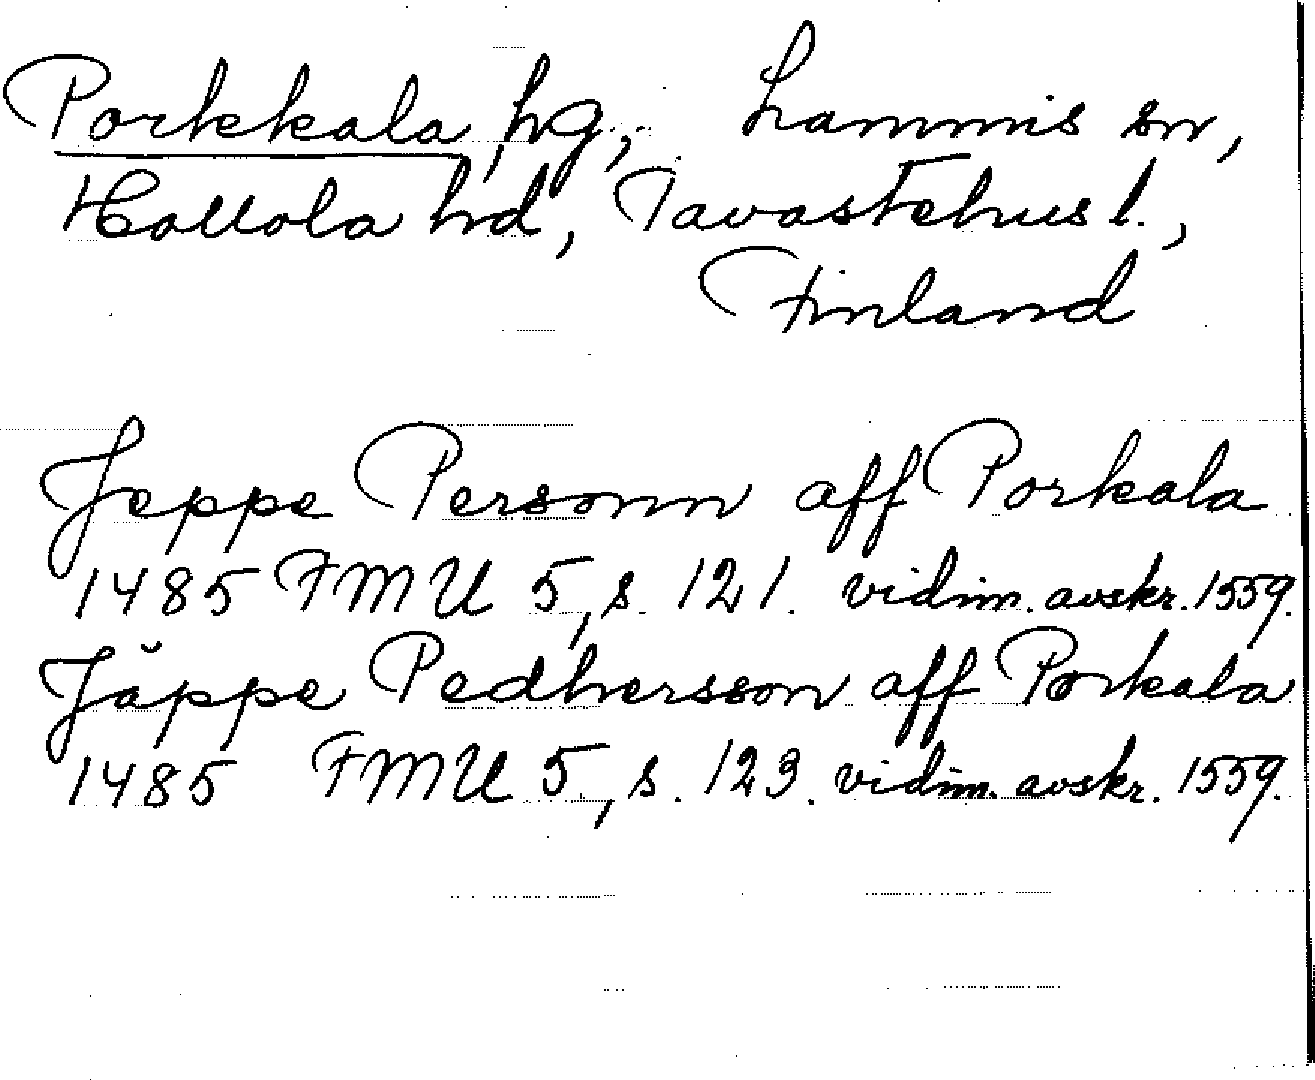 Porkkala, hg, Lammis sn,
Hollola hd, Tavastehus l.,
Finland
Jeppe Personn aff Porkala
1485 FMU 5, s. 121. vidim. avskr. 1559.
Jäppe Pedhersson aff Porkala
1485 FMU 5, s. 123. vidim. avskr. 1559.